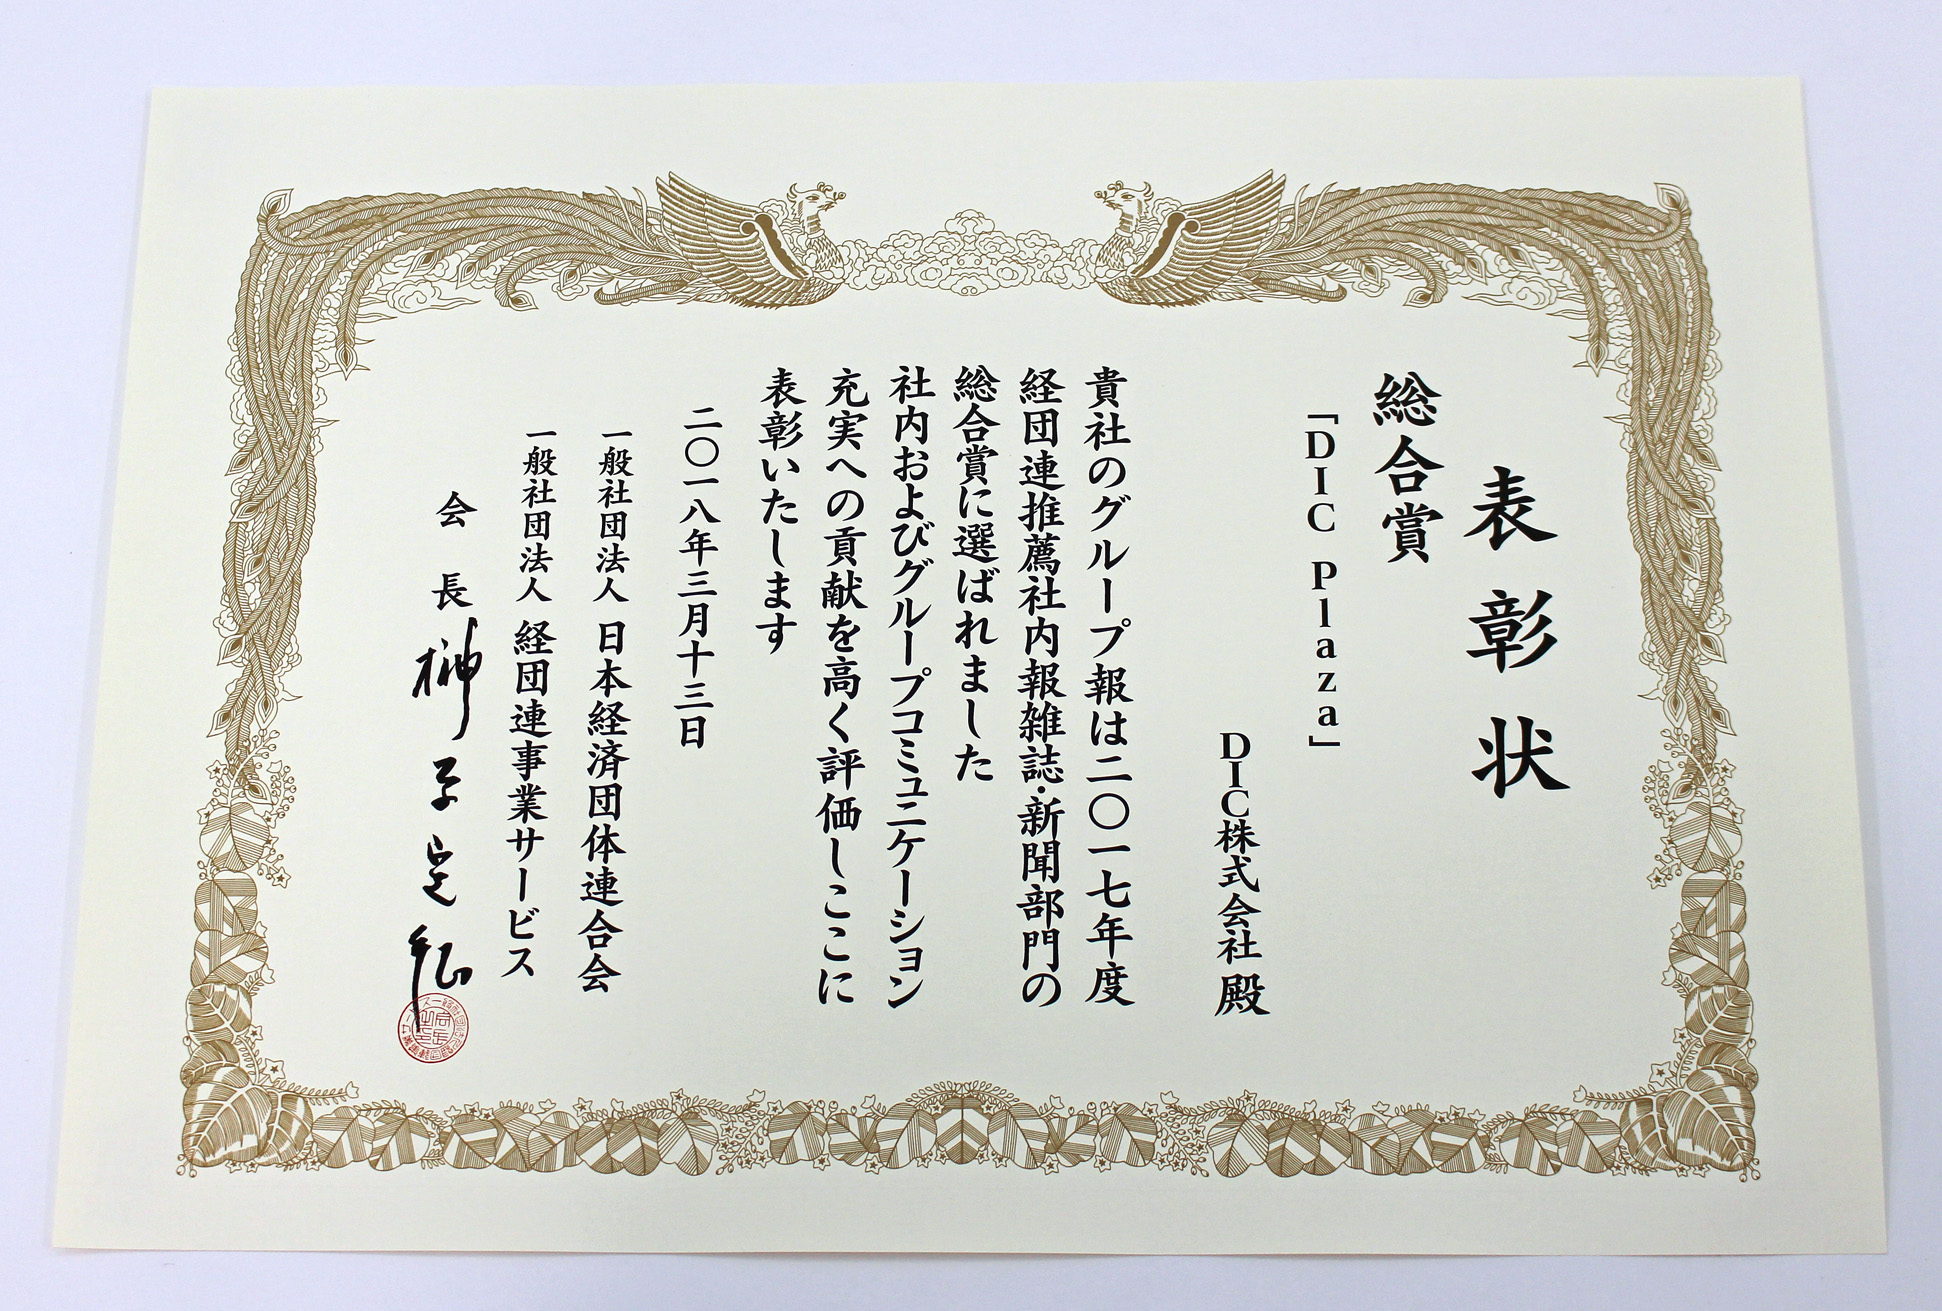 表彰状
総合賞
「DIC Plaza」
DIC株式会社 殿
貴社のグループ報は二〇一七年度
経団連推薦社内報雑誌・新聞部門の
総合賞に選ばれました
社内およびグループコミュニケーション
充実への貢献を高く評価しここに
表彰いたします
二〇一八年三月十三日
一般社団法人 日本経済団体連合会
一般社団法人 経団連事業サービス
会長 榊原定征